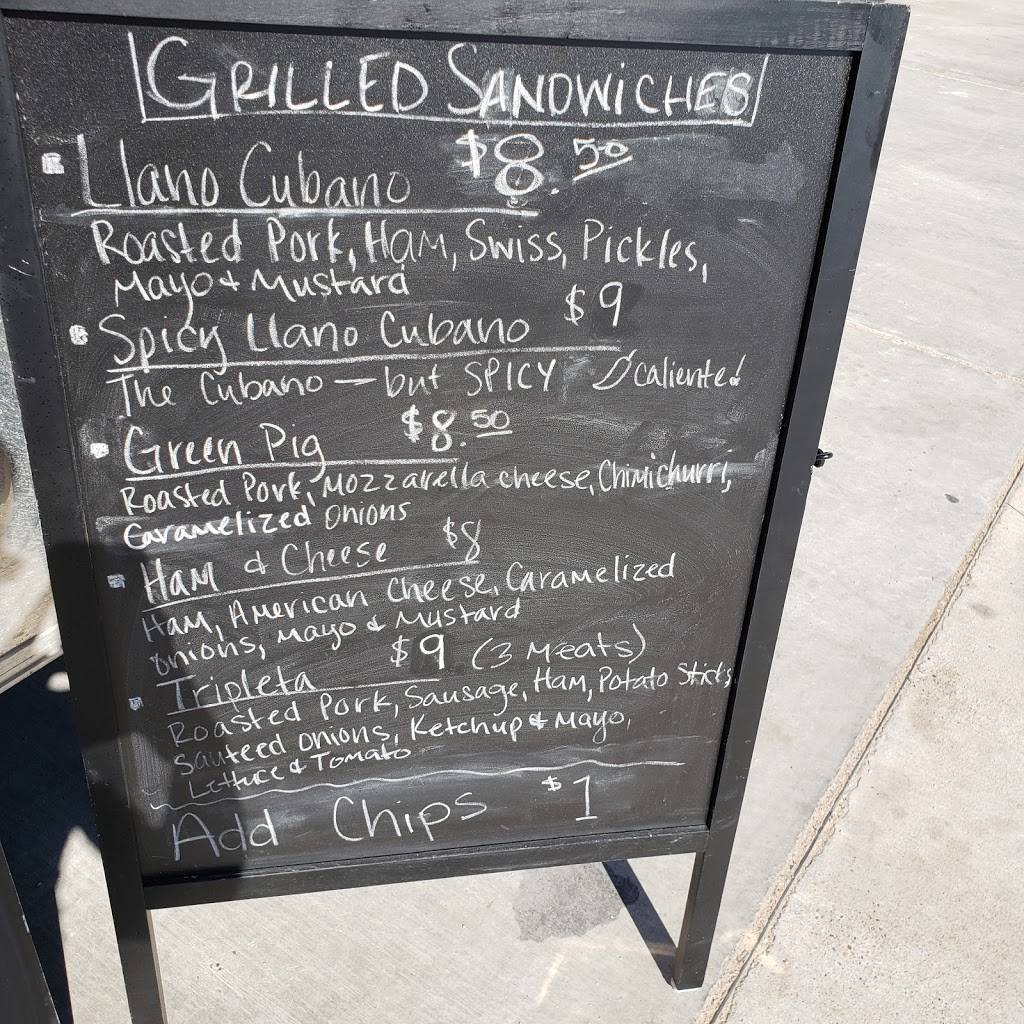 GRILLED SANDWICHES
Llano Cubano $8.50
Roasted Pork, Ham, Swiss, Pickles,
Mayo & Mustard
Spicy Llano Cubano $9
The Cubano — but SPICY caliente!
Green Pig $8.50
Roasted Pork, Mozzarella cheese, Chimichurri,
Caramelized Onions
Ham & Cheese $8
Ham, American Cheese, Caramelized
onions, Mayo & Mustard
Tripleta $9 (3 Meats)
Roasted Pork, Sausage, Ham, Potato Sticks,
sauteed onions, Ketchup & Mayo,
Lettuce & Tomato
Add Chips $1